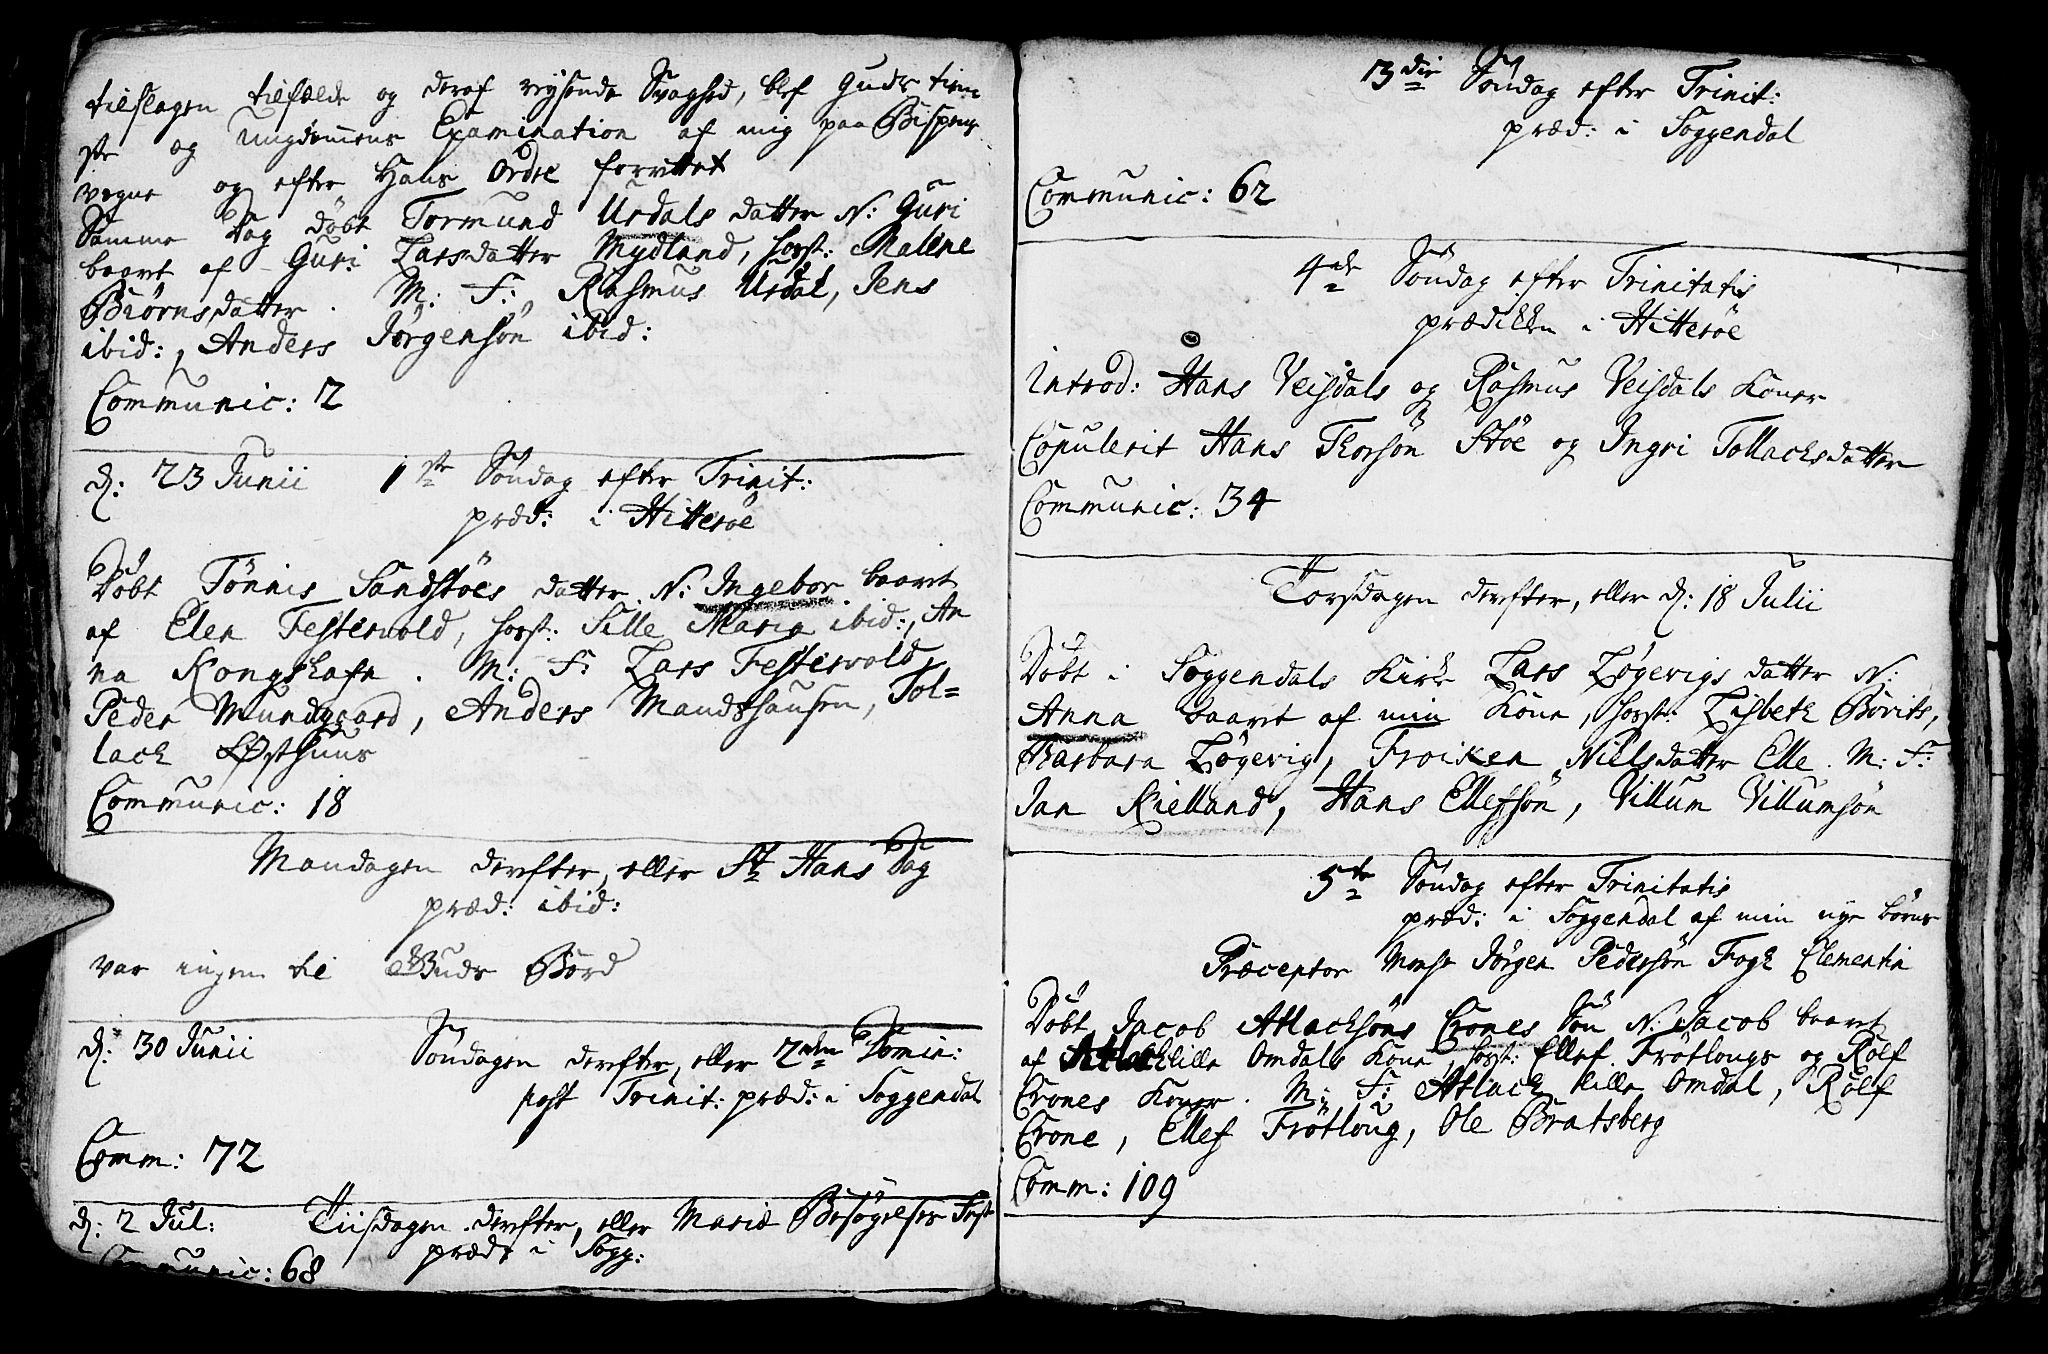 tilslagen tilfælde og deraf reysende Svaghed, blef Guds tiene
ste og ungdommens Examination af mig paa Bispens
vegne og efter Hans Ordre forrettet
Samme Dag døbt Tormund Urdals datter N: Guri
baaret af Guri Larsdatter Mydland, hosst: Malene
Biørnsdatter. M: F: Rasmus Urdal, Jens
ibid:, Anders Jørgensøn ibid:
Communic: 2
d: 23 Junii 1ste Søndag efter Trinit:
præd: i Hitterøe
Døbt Tönnis Sandstöes datter N: Ingebor baaret
af Elen Festervold, hosst: Sille Maria ibid:, An
na Kongshafn. M: F: Lars Festervold,
Peder Mundgaard, Anders Mandshausen, Tol=
lack Østhuus
Communic: 18
Mandagen derefter, eller St Hans Dag
præd: ibid:
var ingen til Guds Bord
d: 30 Junii Søndagen derefter, eller 2den Domin:
post Trinit: præd: i Soggendal
Comm: 72
d: 2 Jul: Tiisdagen derefter, eller Mariæ Besøgelses Fest
præd: i Sogg:
Communic: 68
3die Søndag efter Trinit:
præd: i Soggendal
Communic: 62
4de Søndag efter Trinitatis
prædiken i Hitterøe
Introd: Hans Veisdals og Rasmus Veisdals Koner
Copulerit Hans Thorsøn Støe og Ingri Tollachsdatter
Communic: 34
Torsdagen derefter, eller d: 18 Julii
Døbt i Soggendals Kirke Lars Løgevigs datter N:
Anna baaret af min Kone, hosst: Lisbeth Bövits,
Barbara Løgevig, Froiken Nielsdatter Elle. M: F:
Jan Kielland, Hans Ellefsøn, Villum Villumsøn
5te Søndag efter Trinitatis
præd: i Soggendal af min nye børns
Præceptor Monsr Jørgen Pedersøn Fogh Clementin
Døbt Jacob Atlacksøns Crones Søn N: Jacob baaret
af Atlack lille Omdals Kone hosst: Ellef Frøtlougs og Rolf
Crones Koner. M: F: Atlack lille Omdal, Rolf
Crone, Ellef Frøtloug, Ole Bratsberg
Comm: 109